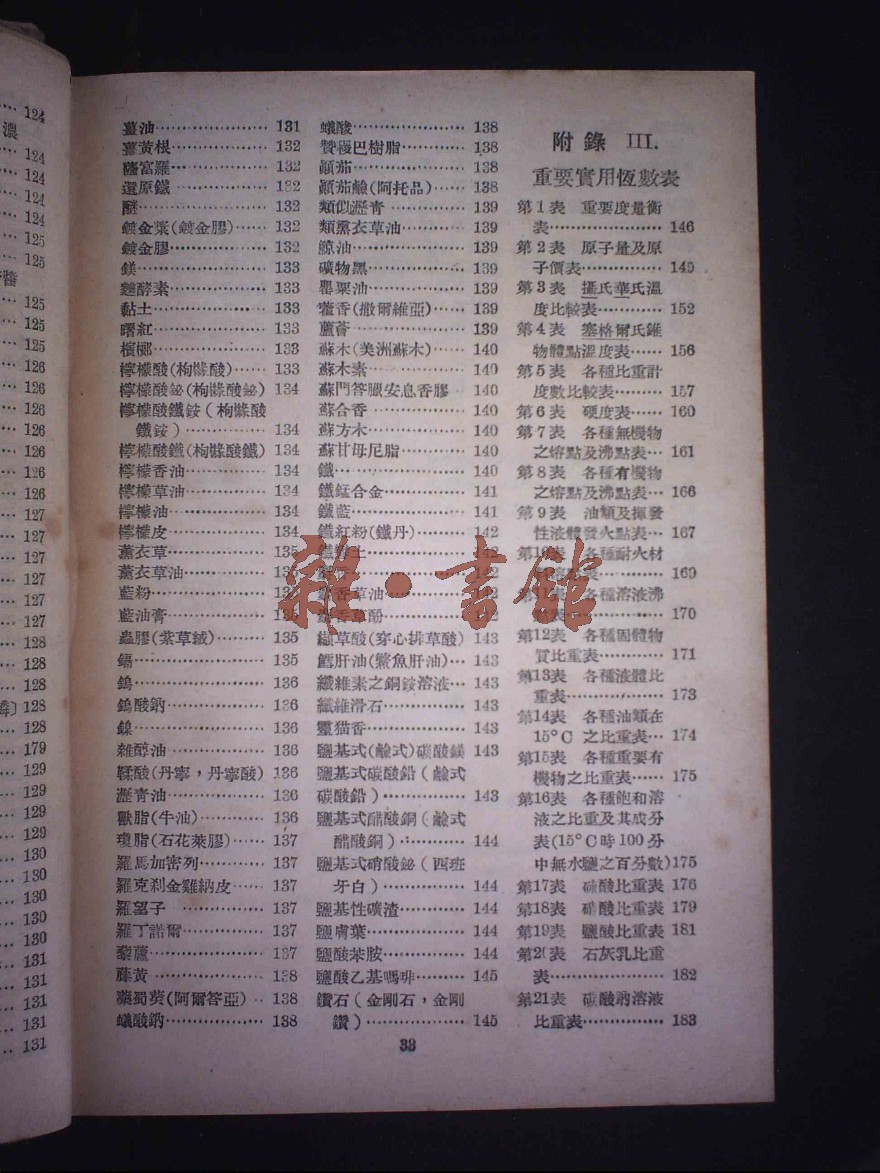 124
濃
124
124
124
124
125
125
醬
125
125
125
126
126
126
126
126
126
126
127
127
127
127
127
128
128
128
128
128
179
129
129
129
129
130
130
130
130
130
131
131
131
131
131
薑油 131
薑黃根 132
薩富羅 132
還原鐵 132
醚 132
鍍金漿(鍍金膠) 132
鍍金膠 132
鎂 133
麯酵素 133
黏土 133
曙紅 133
檳榔 133
檸檬酸(枸櫞酸) 133
檸檬酸鉍(枸櫞酸鉍) 134
檸檬酸鐵銨(枸櫞酸
鐵銨) 134
檸檬酸鐵(枸櫞酸鐵) 134
檸檬香油 134
檸檬草油 134
檸檬油 134
檸檬皮 134
薰衣草 135
薰衣草油 135
藍粉 135
藍油膏 135
蟲膠(紫草絨) 135
鎘 135
鎢 136
鎢酸鈉 136
鎳 136
雜醇油 136
鞣酸(丹寧，丹寧酸) 136
瀝青油 136
獸脂(牛油) 136
瓊脂(石花菜膠) 137
羅馬加密列 137
羅克剎金雞納皮 137
羅望子 137
羅丁諾爾 137
藜蘆 137
藤黃 138
藥蜀葵(阿爾答亞) 138
蟻酸鈉 138
蟻酸 138
贊稷巴樹脂 138
顛茄 138
顛茄鹼(阿托品) 138
類似瀝青 139
類薰衣草油 139
鯨油 139
礦物黑 139
罌粟油 139
藿香(撒爾維亞) 139
蘆薈 139
蘇木(美洲蘇木) 140
蘇木素 140
蘇門答臘安息香膠 140
蘇合香 140
蘇方木 140
蘇甘毋尼脂 140
鐵 140
鐵錳合金 141
鐵藍 141
鐵紅粉(鐵丹) 142
142
142
香草油 142
香草酚 142
纈草酸(穿心排草酸) 143
鱈肝油(鱉魚肝油) 143
纖維素之銅銨溶液 143
纖維滑石 143
靈猫香 143
鹽基式(鹼式)碳酸鎂 143
鹽基式碳酸鉛(鹼式
碳酸鉛) 143
鹽基式醋酸銅(鹼式
醋酸銅) 144
鹽基式硝酸鉍(西班
牙白) 144
鹽基性礦渣 144
鹽膚葉 144
鹽酸苯胺 144
鹽酸乙基嗎啡 145
鑽石(金剛石，金剛
鑽) 145
附錄 III.
重要實用恆數表
第1表 重要度量衡
表 146
第2表 原子量及原
子價表 149
第3表 攝氏華氏溫
度比較表 152
第4表 塞格爾氏錐
物體點溫度表 156
第5表 各種比重計
度數比較表 157
第6表 硬度表 160
第7表 各種無機物
之熔點及沸點表 161
第8表 各種有機物
之熔點及沸點表 166
第9表 油類及揮發
性液體發火點表 167
第10表 各種耐火材
169
第11表 各種溶液沸
表 170
第12表 各種固體物
質比重表 171
第13表 各種液體比
重表 173
第14表 各種油類在
15°C 之比重表 174
第15表 各種重要有
機物之比重表 175
第16表 各種飽和溶
液之比重及其成分
表(15°C時100分
中無水鹽之百分數) 175
第17表 硫酸比重表 176
第18表 硝酸比重表 179
第19表 鹽酸比重表 181
第20表 石灰乳比重
表 182
第21表 碳酸鈉溶液
比重表 183
33
雜·書館